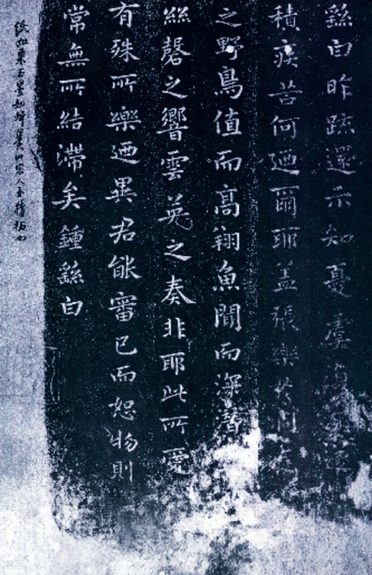 繇白昨疏還示知憂虞
積疾苦何迺爾耶蓋張樂於洞庭
之野鳥值而高翔魚聞而深潛
絲磬之響雲英之奏非耶此所愛
有殊所樂迺異君能審己而恕物則
常無所結滯矣鍾繇白